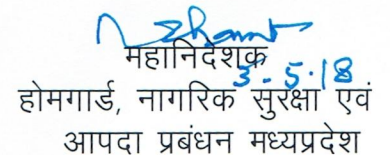 महानिदेशक
3-5-18
होमगार्ड, नागरिक सुरक्षा एवं
आपदा प्रबंधन मध्यप्रदेश